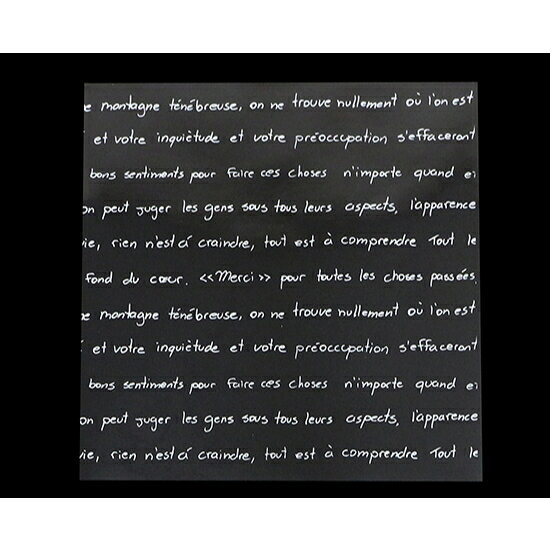 e montagne ténébreuse, on ne trouve nullement où l'on est
et votre inquiètude et votre préocccpation s'effaceront
bons sentiments pour faire ces choses n'importe quand
on peut juger les gens sous tous leurs aspects, l'apparence
ie, rien n'est à craindre, tout est à comprendre Tout le
fond du cœur. <<Merci>> pour toutes les choses passées.
e montagne ténébreuse, on ne trouve nullement où l'on est
et votre inquiètude et votre préocccpation s'effaceront
bons sentiments pour faire ces choses n'importe quand
on peut juger les gens sous tous leurs aspects, l'apparence
ie, rien n'est à craindre, tout est à comprendre Tout le